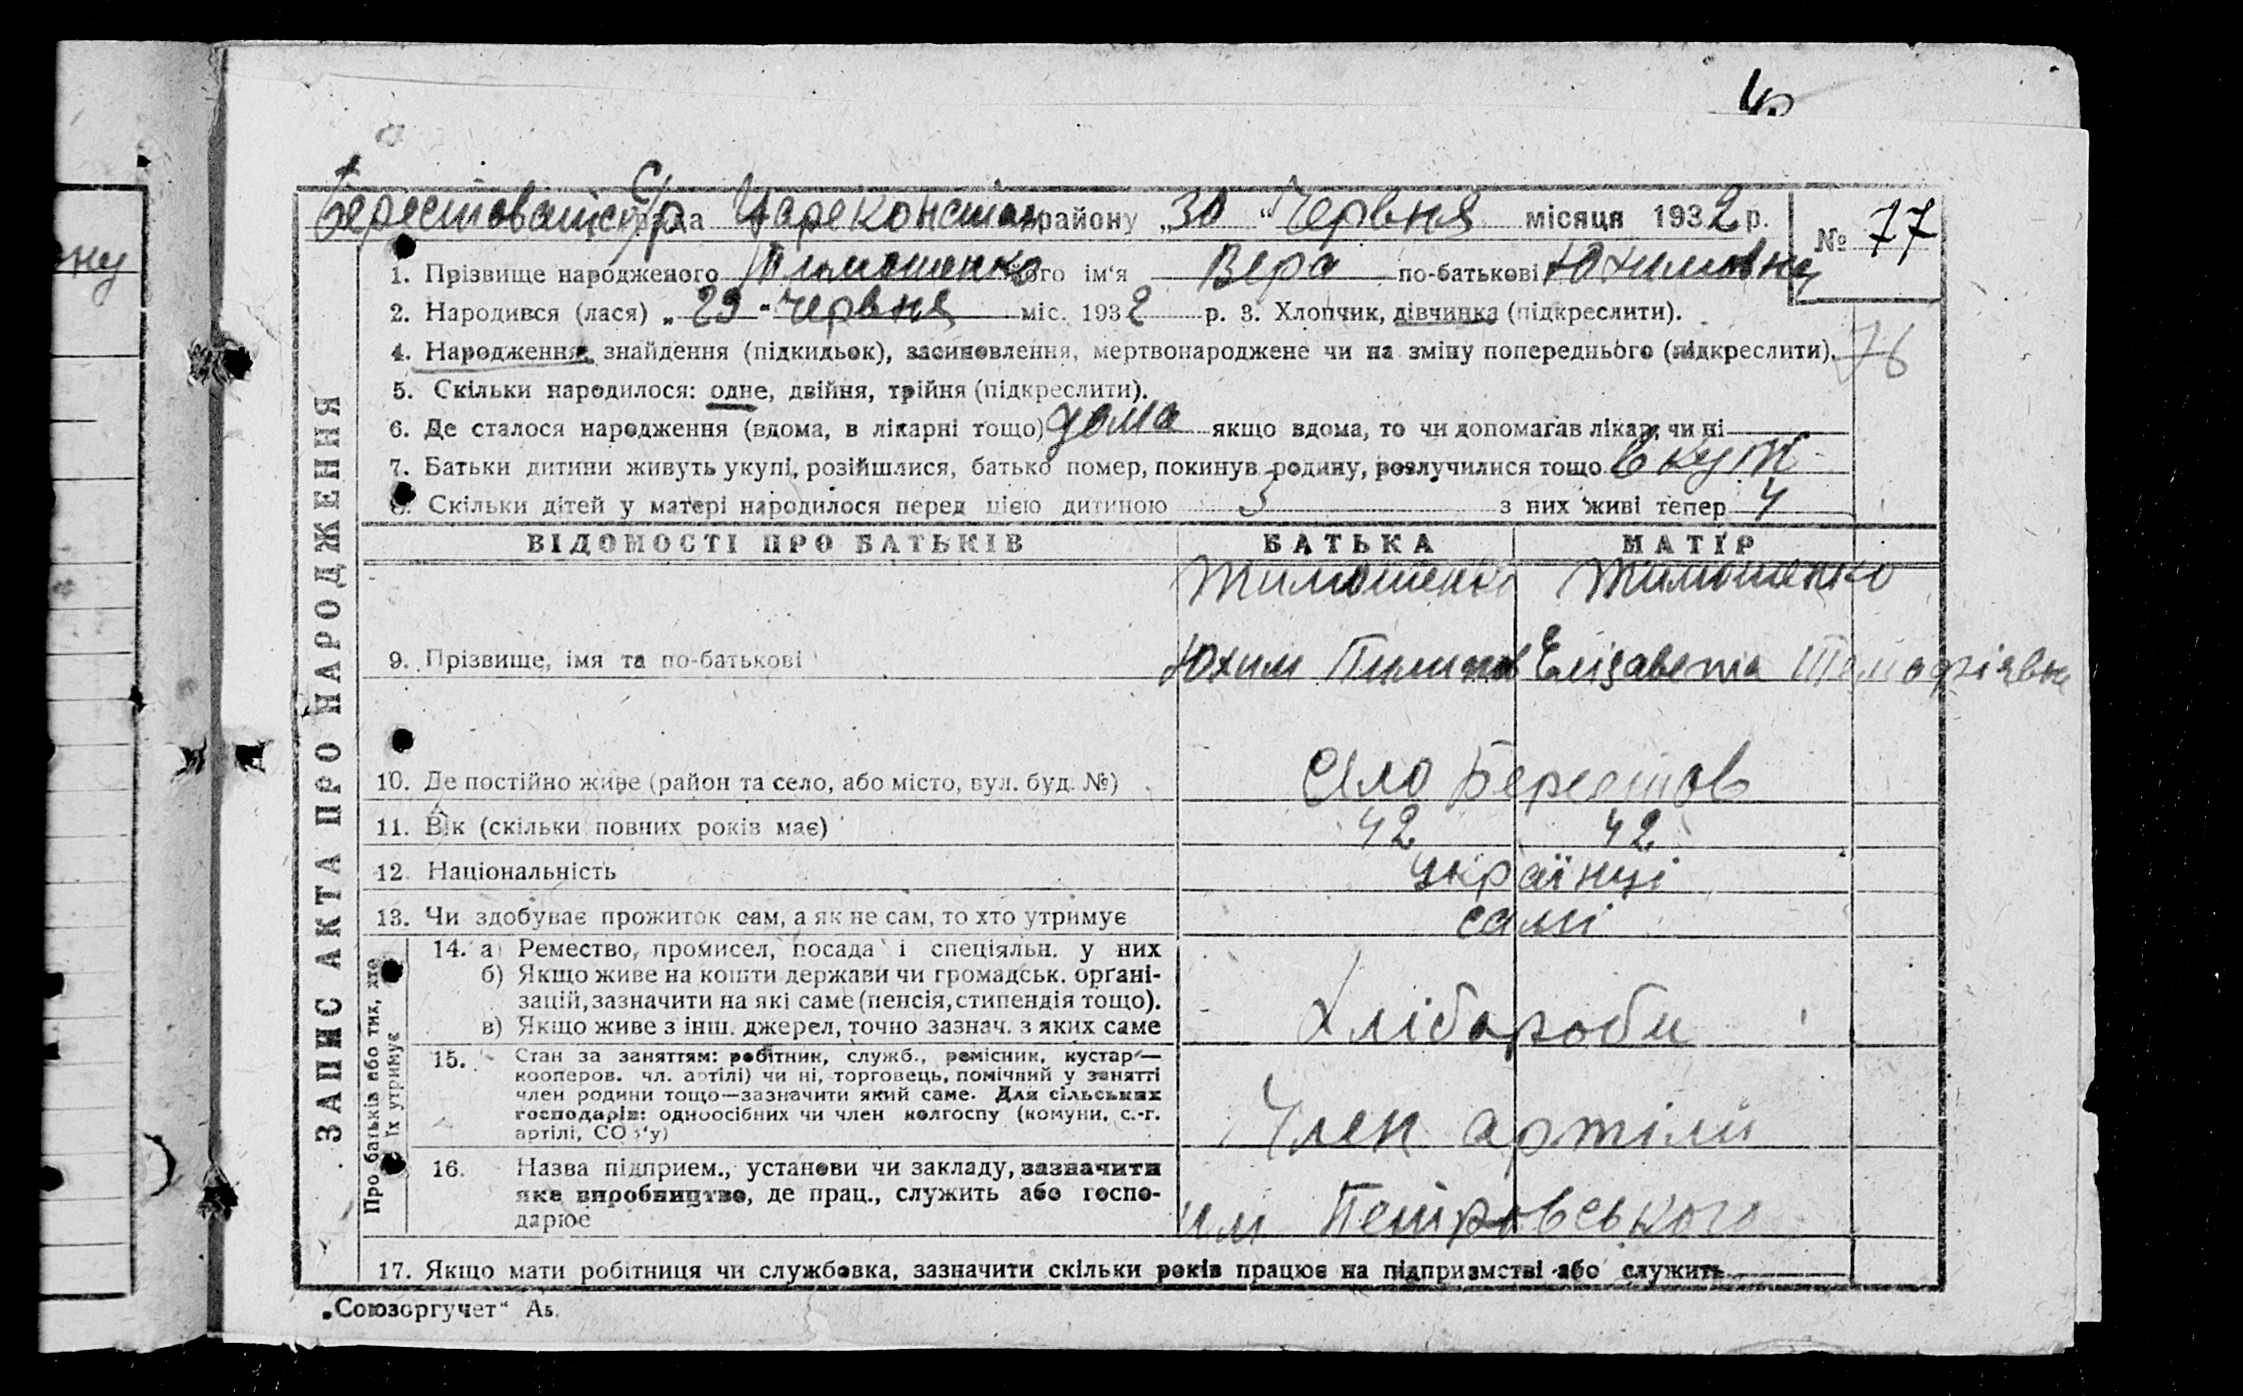 Берестоватск с/р рада Цареконстан району „30“ Червня місяця 1932 р.
№ 77
1. Прізвище народженого Тимошенко його ім'я Вера по-батькові Юхимовна
2. Народився (лася) „29“ червня міс. 1932 р. 3. Хлопчик, дівчинка (підкреслити).
4. Народження, знайдення (підкидьок), засиновлення, мертвонароджене чи на зміну попереднього (підкреслити).
76
5. Скільки народилося: одне, двійня, трійня (підкреслити).
6. Де сталося народження (вдома, в лікарні тощо) дома якщо вдома, то чи допомагав лікар, чи ні
7. Батьки дитини живуть укупі, розійшлися, батько помер, покинув родину, розлучилися тощо вкупі
8. Скільки дітей у матері народилося перед цією дитиною 5 з них живі тепер 4
ВІДОМОСТІ ПРО БАТЬКІВ БАТЬКА МАТІР
Тимошенко Тимошенко
9. Прізвище, імя та по-батькові Юхим Пилипов Елізавета Тимофіявна
10. Де постійно живе (район та село, або місто, вул. буд. №) Село Берестов
11. Вік (скільки повних років має) 42 42
12. Національність українці
13. Чи здобуває прожиток сам, а як не сам, то хто утримує самі
14. а) Ремество, промисел, посада і спеціяльн. у них
б) Якщо живе на кошти держави чи громадськ. орґані-
зацій, зазначити на які саме (пенсія, стипендія тощо).
в) Якщо живе з інш. джерел, точно зазнач. з яких саме
Хлібороби
15. Стан за заняттям: робітник, служб., ремісник, кустар—
кооперов. чл. артілі) чи ні, торговець, помічний у занятті
член родини тощо—зазначити який саме. Для сільських
господарів: одноосібних чи член колгоспу (комуни, с.-г.
артілі, СОЗ'у)
Член артіли
16. Назва підприєм., установи чи закладу, зазначити
яке виробництво, де прац., служить або госпо-
дарює
им Петровського
17. Якщо мати робітниця чи службовка, зазначити скільки років працює на підприємстві або служить
ЗАПИС АКТА ПРО НАРОДЖЕННЯ
Про батьків або тих, хто
їх утримує
„Союзоргучет“